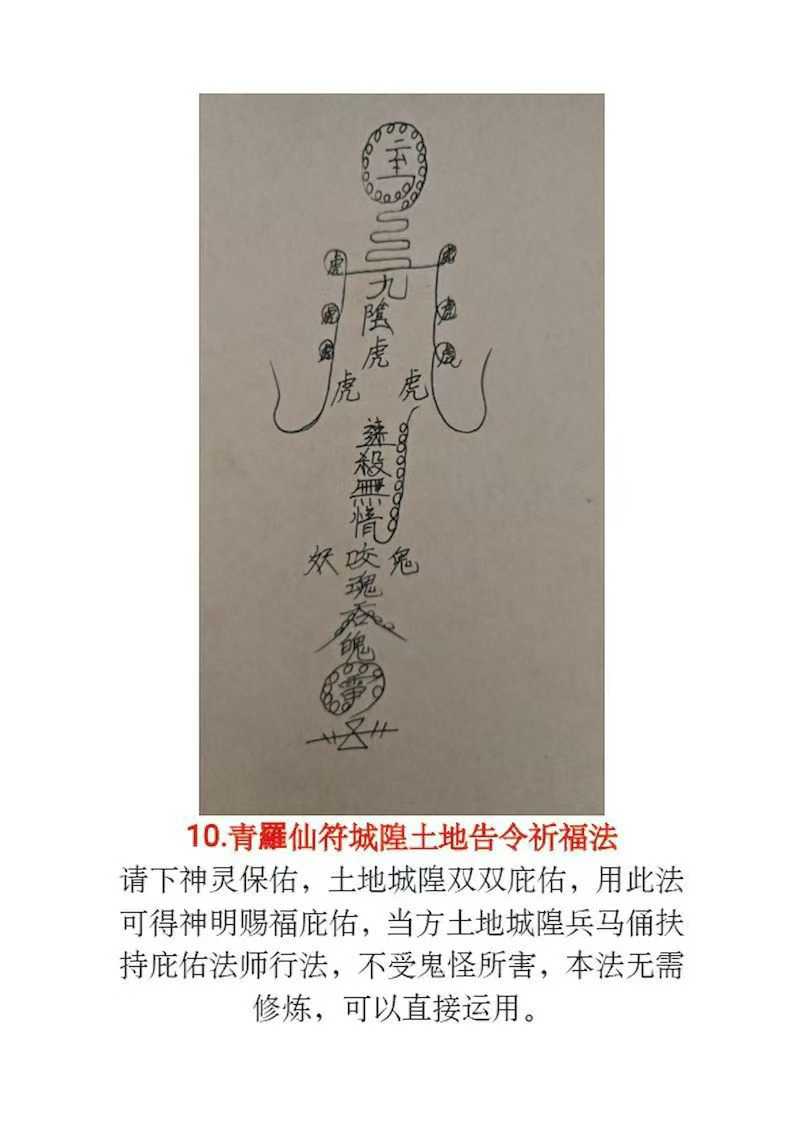 主
虎 虎
九
陰
虎 虎
虎
虎 虎
虎 虎
速
殺
無
情
妖 咬 鬼
魂
吞
魄
10.青羅仙符城隍土地告令祈福法
请下神灵保佑，土地城隍双双庇佑，用此法
可得神明赐福庇佑，当方土地城隍兵马俑扶
持庇佑法师行法，不受鬼怪所害，本法无需
修炼，可以直接运用。